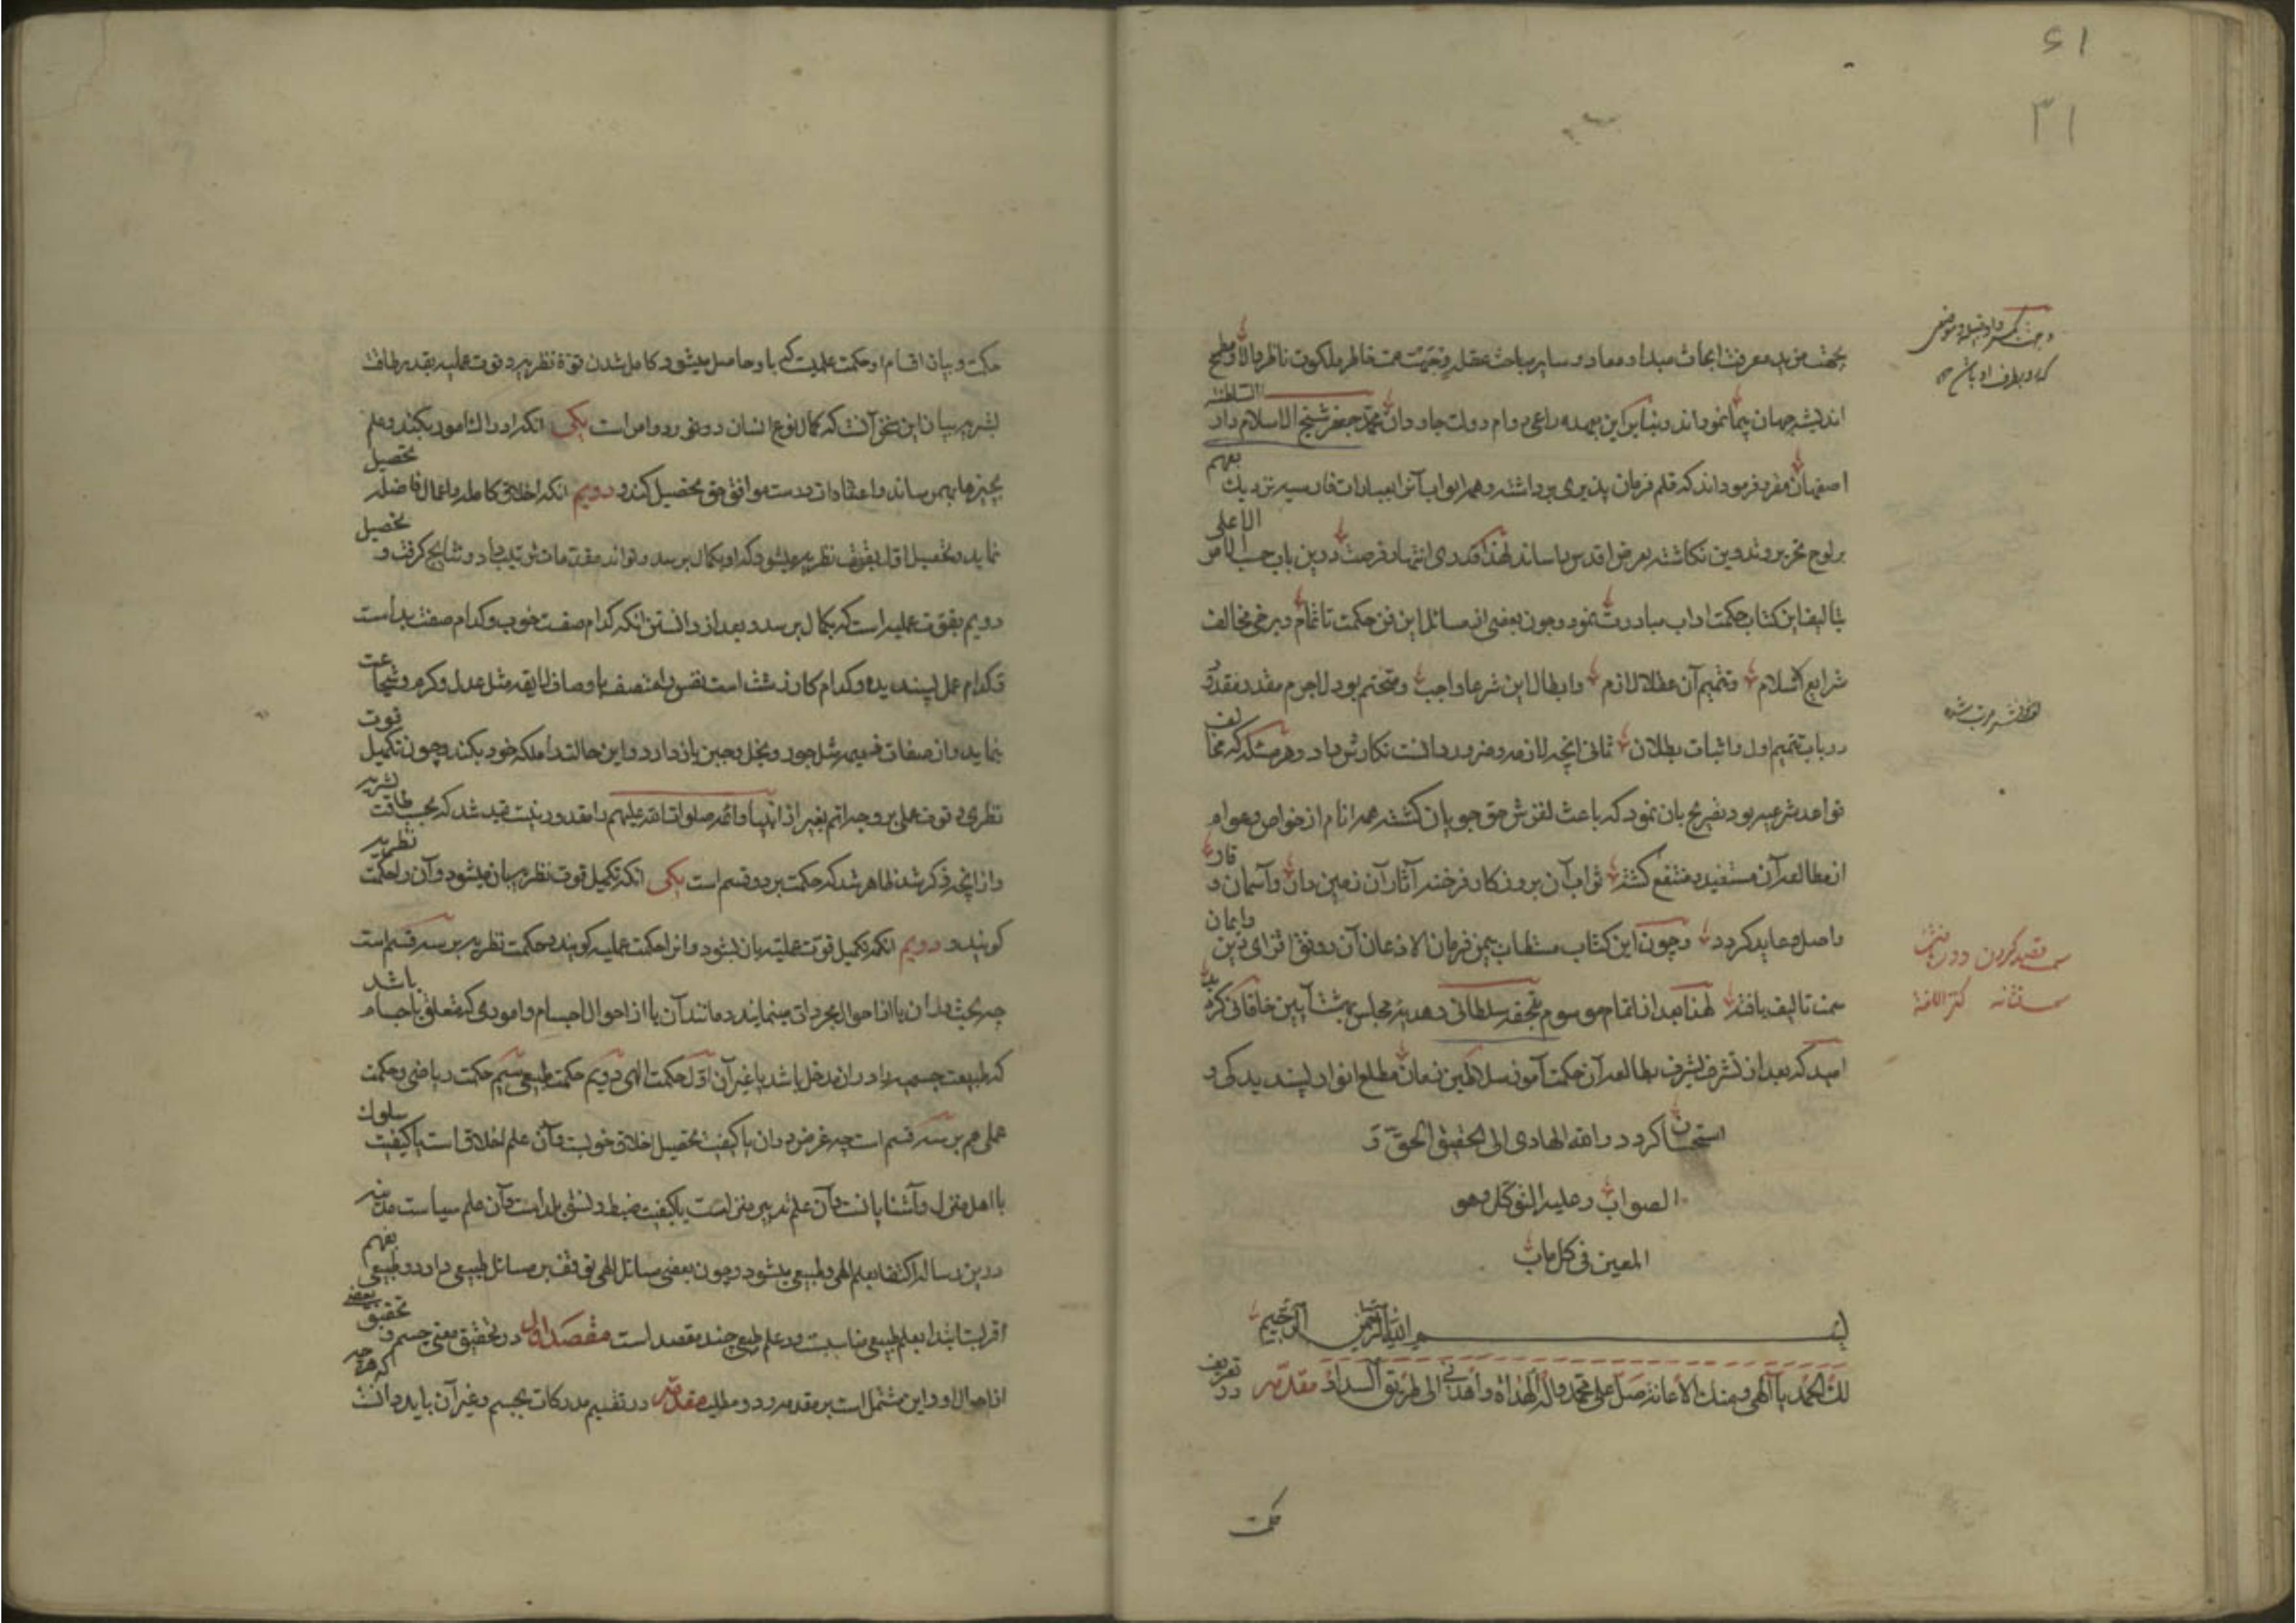 ۶۱
۳۱
بجهت مزید معرفت ابحاث مبداء و معاد و سایر مباحث عقلیه وجهت همت خاطر ملکوت ناظر والا و مطمح
اندیشه جهان پیما نموداند و بنابراین مهمده داعی دوام دولت جاودان محمد جعفر شیخ الاسلام دار السلطنه
اصفهان مقرر فرموداند که قلم فرمان پذیری برداشته و همه ابواب آنرا بعبارات فارسیه نزدیک بفهم
بر لوح تحریر و تدوین نگاشته بعرض اقدس رساند لهذا کمترین انتهاز فرصت درین باب حسب الامر الاعلی
بتالیف این کتاب حکمت اداب مبادرت نمود و چون بعضی از مسائل این فن حکمت ناتمام و برخی مخالف
شرایع اسلام و تتمیم آن عقلا لازم و ابطال این شرعا واجب و متحتم بود لاجرم بقدر مقدور
در باب تتمیم اول و اثبات بطلان ثانی آنچه لازمه و ضرور دانست نگارش داد و هر مسئله که مخالف
قواعد شرعیه بود تصریح بان نمود که باعث لغزش حق جویان نگشته همه انام از خواص و عوام
از مطالعه آن مستفید و منتفع کشته ثواب آن بروزکار فرخنده آثار آن زمین دان و آسمان وقار
واصل و عاید کردد و چون این کتاب مستطاب بیمن فرمان لازم الاذعان آن رونق افزای دین و ایمان
سمت تالیف یافته لهذا بعد از اتمام موسوم بتحفه سلطانی و هدیه مجلس بهشت آیین خاقانی کردید
امید که بعد از تشرف بشرف مطالعه آن حکمت آموز سلاطین زمان مطلع انوار پسندیدکی و
استحسان کردد و الله الهادی الی تحقیق الحق و
الصواب و علیه التوکل و هو
المعین فی کل باب
بسم الله الرحمن الرحیم
لک الحمد یا الهی و منک الاعانة صل علی محمد وآله الهداة و اهدنی الی طریق السداد مقدمه در تعریف
حکمت
قصد کردن و در یافتن
کنز اللغة
حکمت و بیان اقسام او حکمت علمیت که باو حاصل میشود کامل شدن قوة نظریه و قوت عملیه بقدر طاقت
بشریه بیان این سخن آنست که کمال نوع انسان دو امر است یکی آنکه ادراک امور بکند و علم
بچیزها بهم رساند و اعتقادات درست موافق حق تحصیل کند و دویم آنکه اخلاق کامله و اعمال فاضله تحصیل
نماید و تحصیل اول بقوت نظریه میشود که او بکمال برسد و تواند مقدمات ترتیب داد و نتایج کرفت و تحصیل
دویم بقوت عملیه است که بکمال برسد و بعد از دانستن آنکه کدام صفت خوب و کدام صفت بد است
و کدام عمل پسندیده و کدام کار زشت است نفس را متصف باوصاف لایقه مثل عدل و کرم و شجاعت
نماید و از صفات ذمیمه مثل جور و بخل و جبن باز دارد و این حالت را ملکه خود بکند و چون تکمیل قوت
نظری و قوت عملی بر وجه اتم بغیر از انبیا و ائمه صلوات الله علیهم را مقدور نیست قید شد که بحسب طاقت بشریه
و از آنچه ذکر شد ظاهر شد که حکمت بر دو قسم است یکی آنکه تکمیل قوت نظریه بان میشود و آن را حکمت نظریه
کویند و دویم آنکه تکمیل قوت عملیه بان بشود و آنرا حکمت عملیه کویند و حکمت نظریه بر سه قسم است
چه بحث در آن یا از احوال مجرداتی مینمایند و مانند آن یا از احوال اجسام و اموری که متعلق باجسام باشد
که طبیعت جسمیه را در آن مدخل باشد یا غیر آن اول حکمت الهی دویم حکمت طبیعی سیم حکمت ریاضی و حکمت
عملی هم بر سه قسم است چه غرض در آن یا کیفیت تحصیل اخلاق خوبست و آن علم اخلاق است یا کیفیت سلوک
با اهل منزل و آشنایانست و آن علم تدبیر منزلست یا کیفیت ضبط و نسق بلد است و آن علم سیاست مدنیه
درین رساله اکتفا بعلم الهی و طبیعی میشود و چون بعضی مسائل الهی توقف بر مسائل طبیعی دارد و طبیعی بفهم
اقربست ابتدا بعلم طبیعی مناسبست و در علم طبیعی چند مقصد است مقصد اول در تحقیق معنی جسم و تحقیق بعضی
از احوال او و این مشتمل است بر مقدمه و دو مطلب مقدمه در تقسیم مدرکات بجسم و غیر آن باید دانست که هرچه